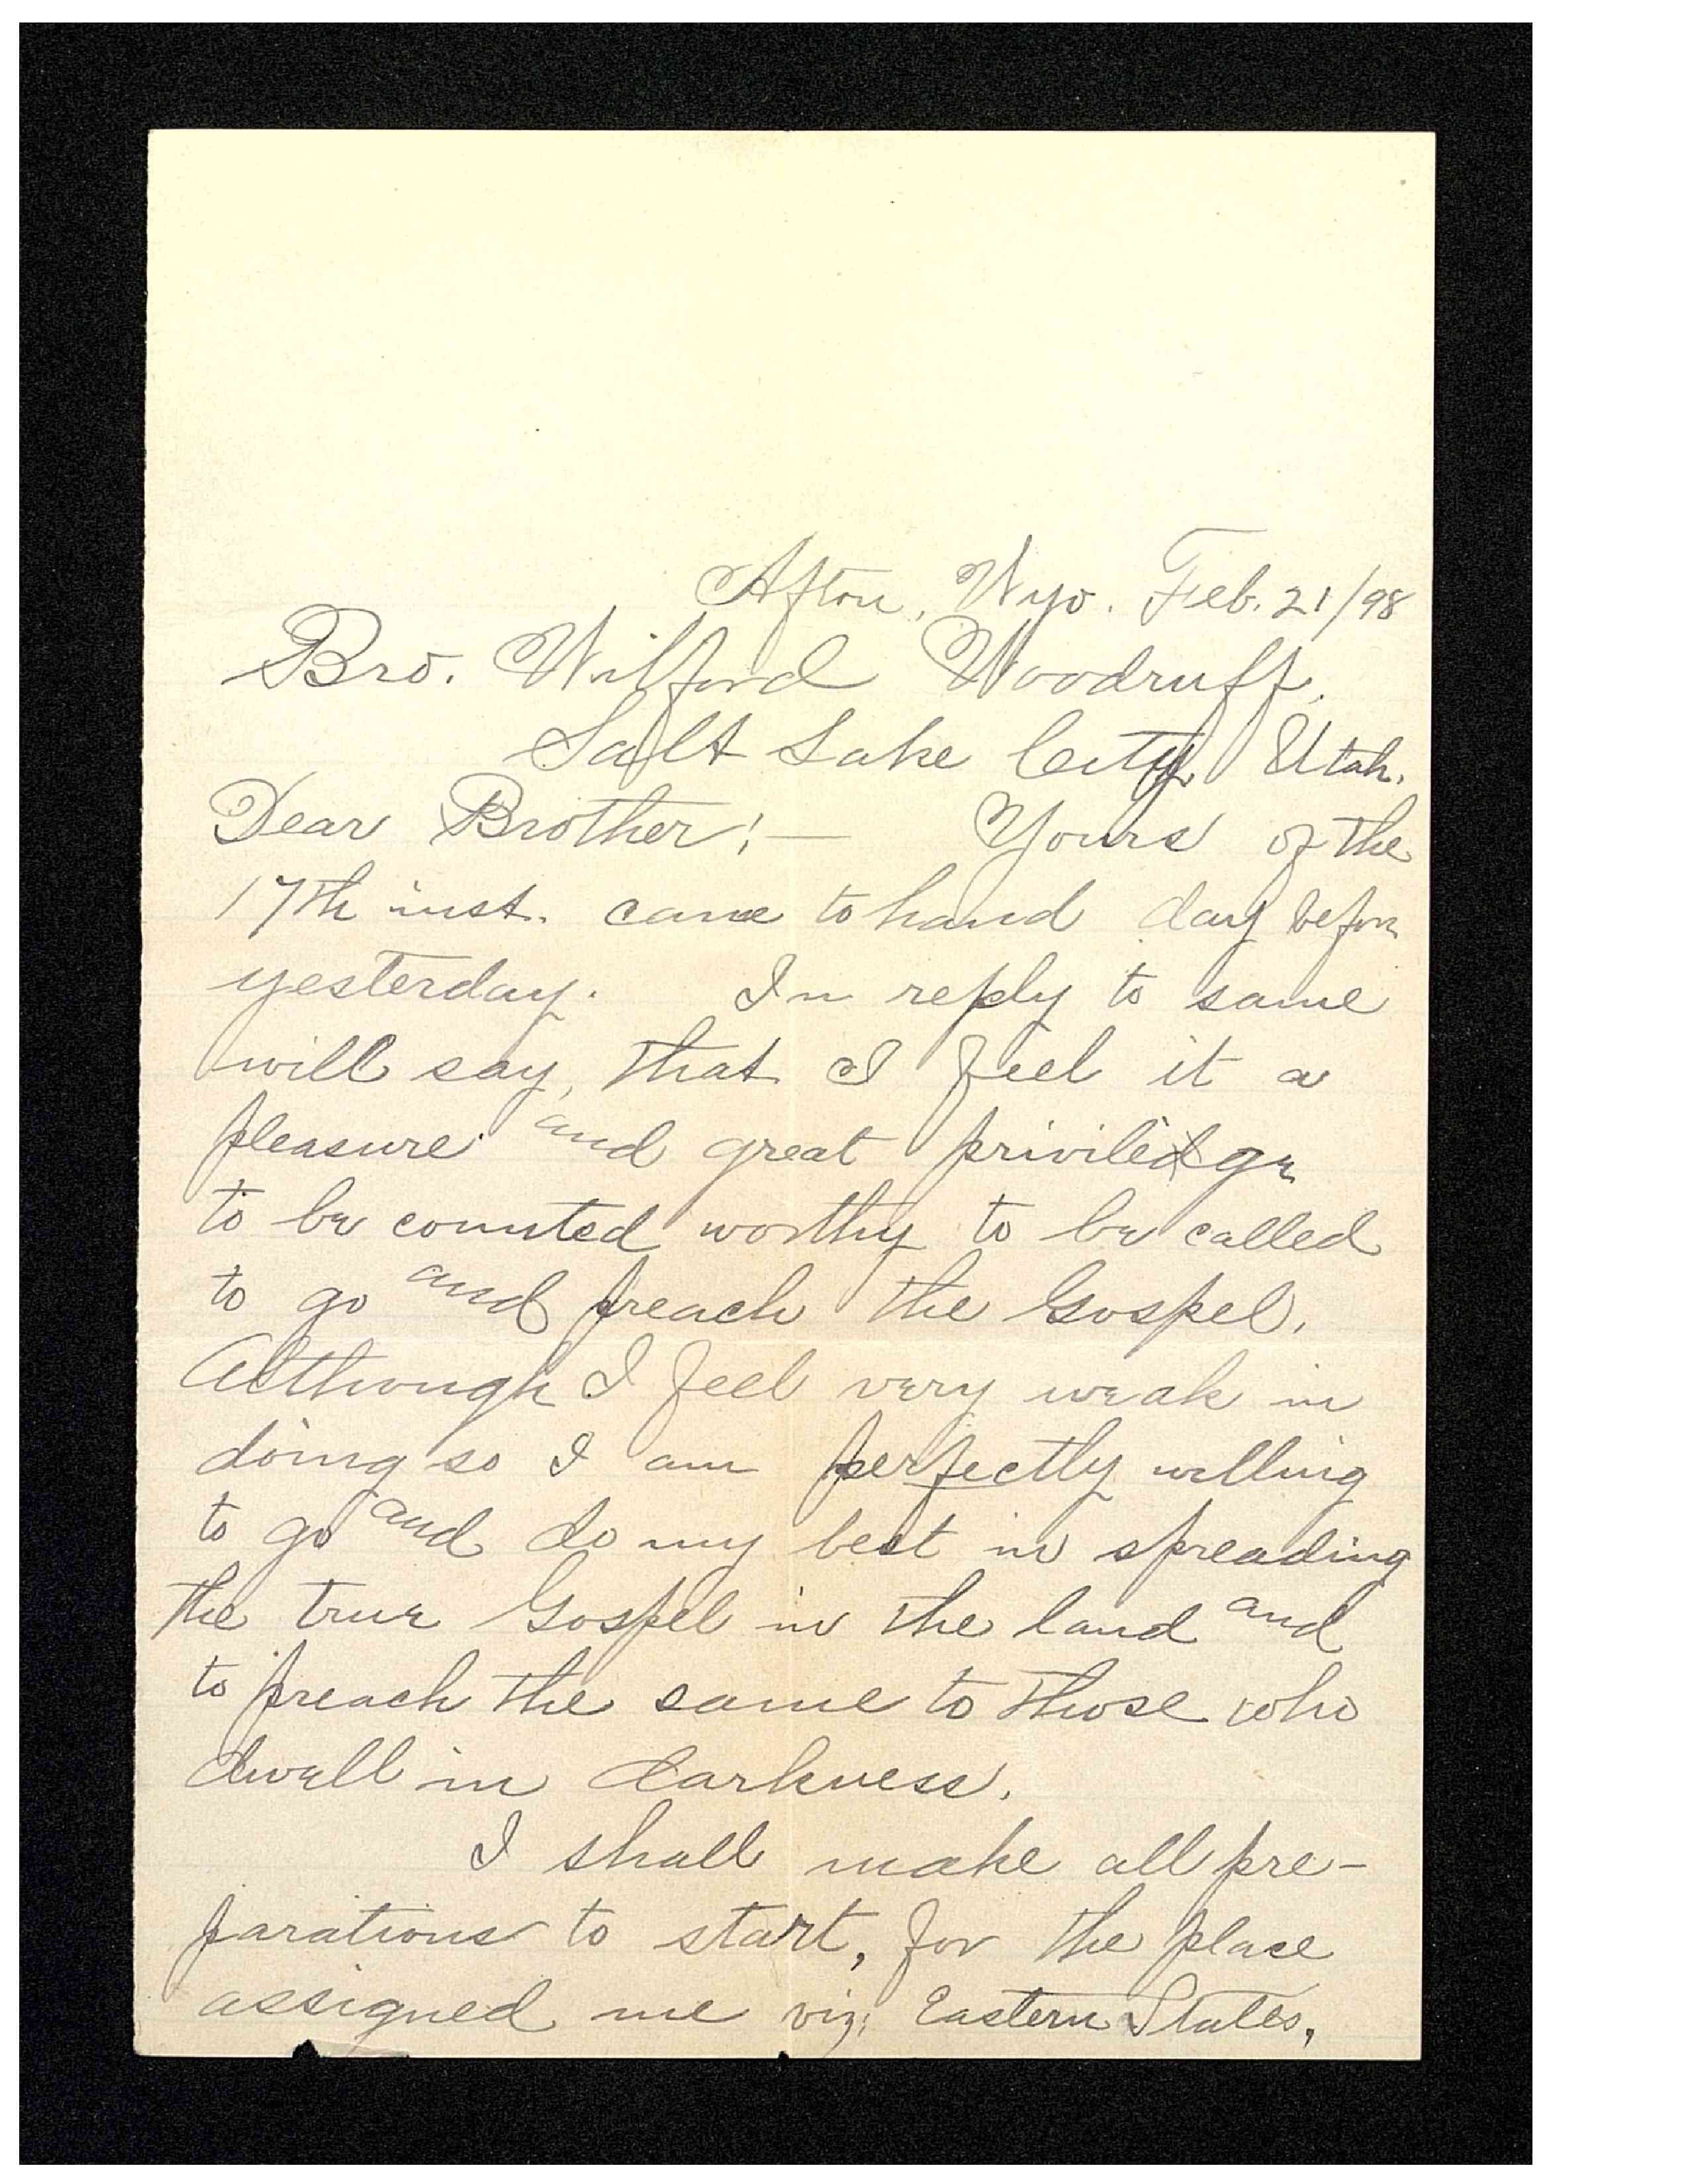 Afton, Wyo. Feb. 21/98
Bro. Wilford Woodruff,
Salt Lake City, Utah.
Dear Brother:— Yours of the
17th inst. came to hand day before
yesterday. In reply to same
will say, that I feel it a
pleasure and great priviledge
to be counted worthy to be called
to go and preach the Gospel.
Although I feel very weak in
doing so I am perfectly willing
to go and do my best in spreading
the true Gospel in the land and
to preach the same to those who
dwell in darkness.
I shall make all pre-
parations to start, for the place
assigned me viz; Eastern States,